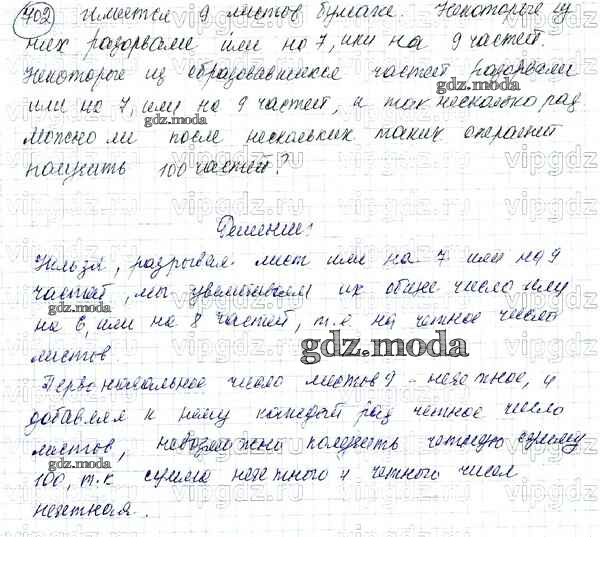 402 Имеется 9 листов бумаги. Некоторые из
них разорвали или на 7, или на 9 частей.
Некоторые из образовавшихся частей разорвали
gdz.moda
или на 7, или на 9 частей, и так несколько раз.
gdz.moda
Можно ли после нескольких таких операций
получить 100 частей?
gdz.moda
Решение:
Нельзя, разрывая лист или на 7 или на 9
частей, мы увеличиваем их общее число или
gdz.moda
на 6, или на 8 частей, т.е на четное число
листов.
gdz.moda
Первоначальное число листов 9 - нечетное, и
добавляя к нему каждый раз четное число
gdz.moda
листов, невозможно получить четную сумму
100, т.к сумма нечетного и четного чисел
gdz.moda
gdz.moda
нечетная.
gdz.moda
vipgdz.ru